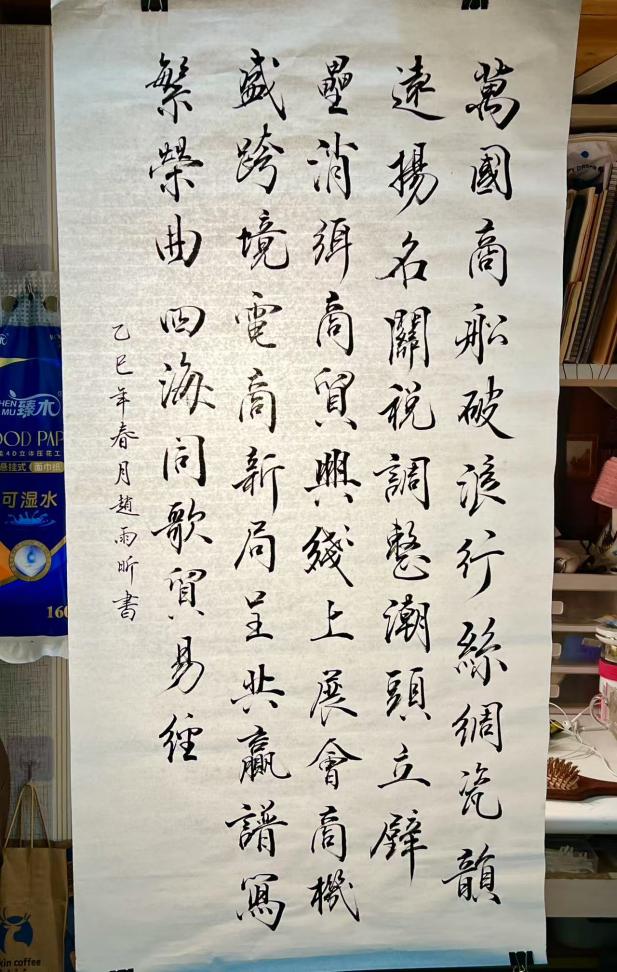 萬國商船破浪行絲綢瓷韻
遠揚名關稅調整潮頭立壁
壘消弭商貿興綫上展會商機
盛跨境電商新局呈共贏譜寫
繁榮曲四海同歌貿易經
乙巳年春月趙雨昕書
臻木
可湿水
160
kin coffee